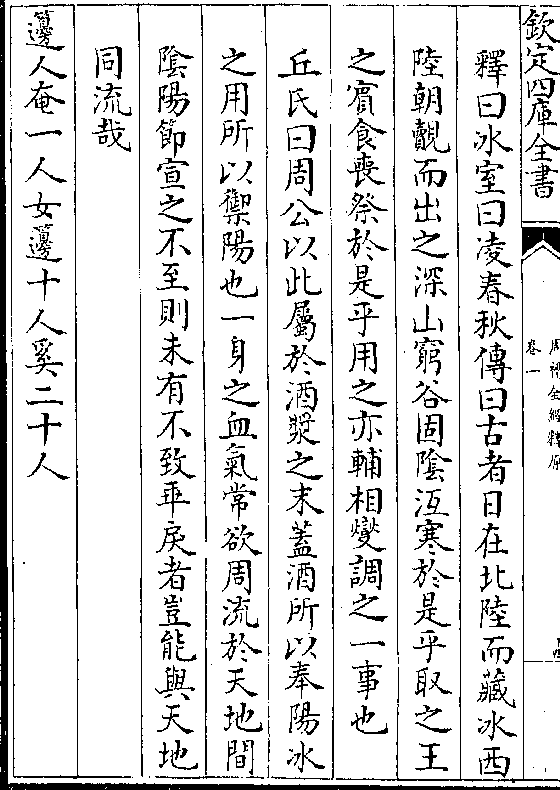 欽定四庫全書
周禮全經釋原
卷一
釋曰冰室曰凌春秋傳曰古者日在北陸而藏冰西
陸朝覿而出之深山窮谷固陰沍寒於是乎取之王
之賔食喪祭於是乎用之亦輔相爕調之一事也
丘氏曰周公以此屬於酒漿之末蓋酒所以奉陽冰
之用所以禦陽也一身之血氣常欲周流於天地間
陰陽節宣之不至則未有不致乖戾者豈能與天地
同流哉
籩人奄一人女籩十人奚二十人